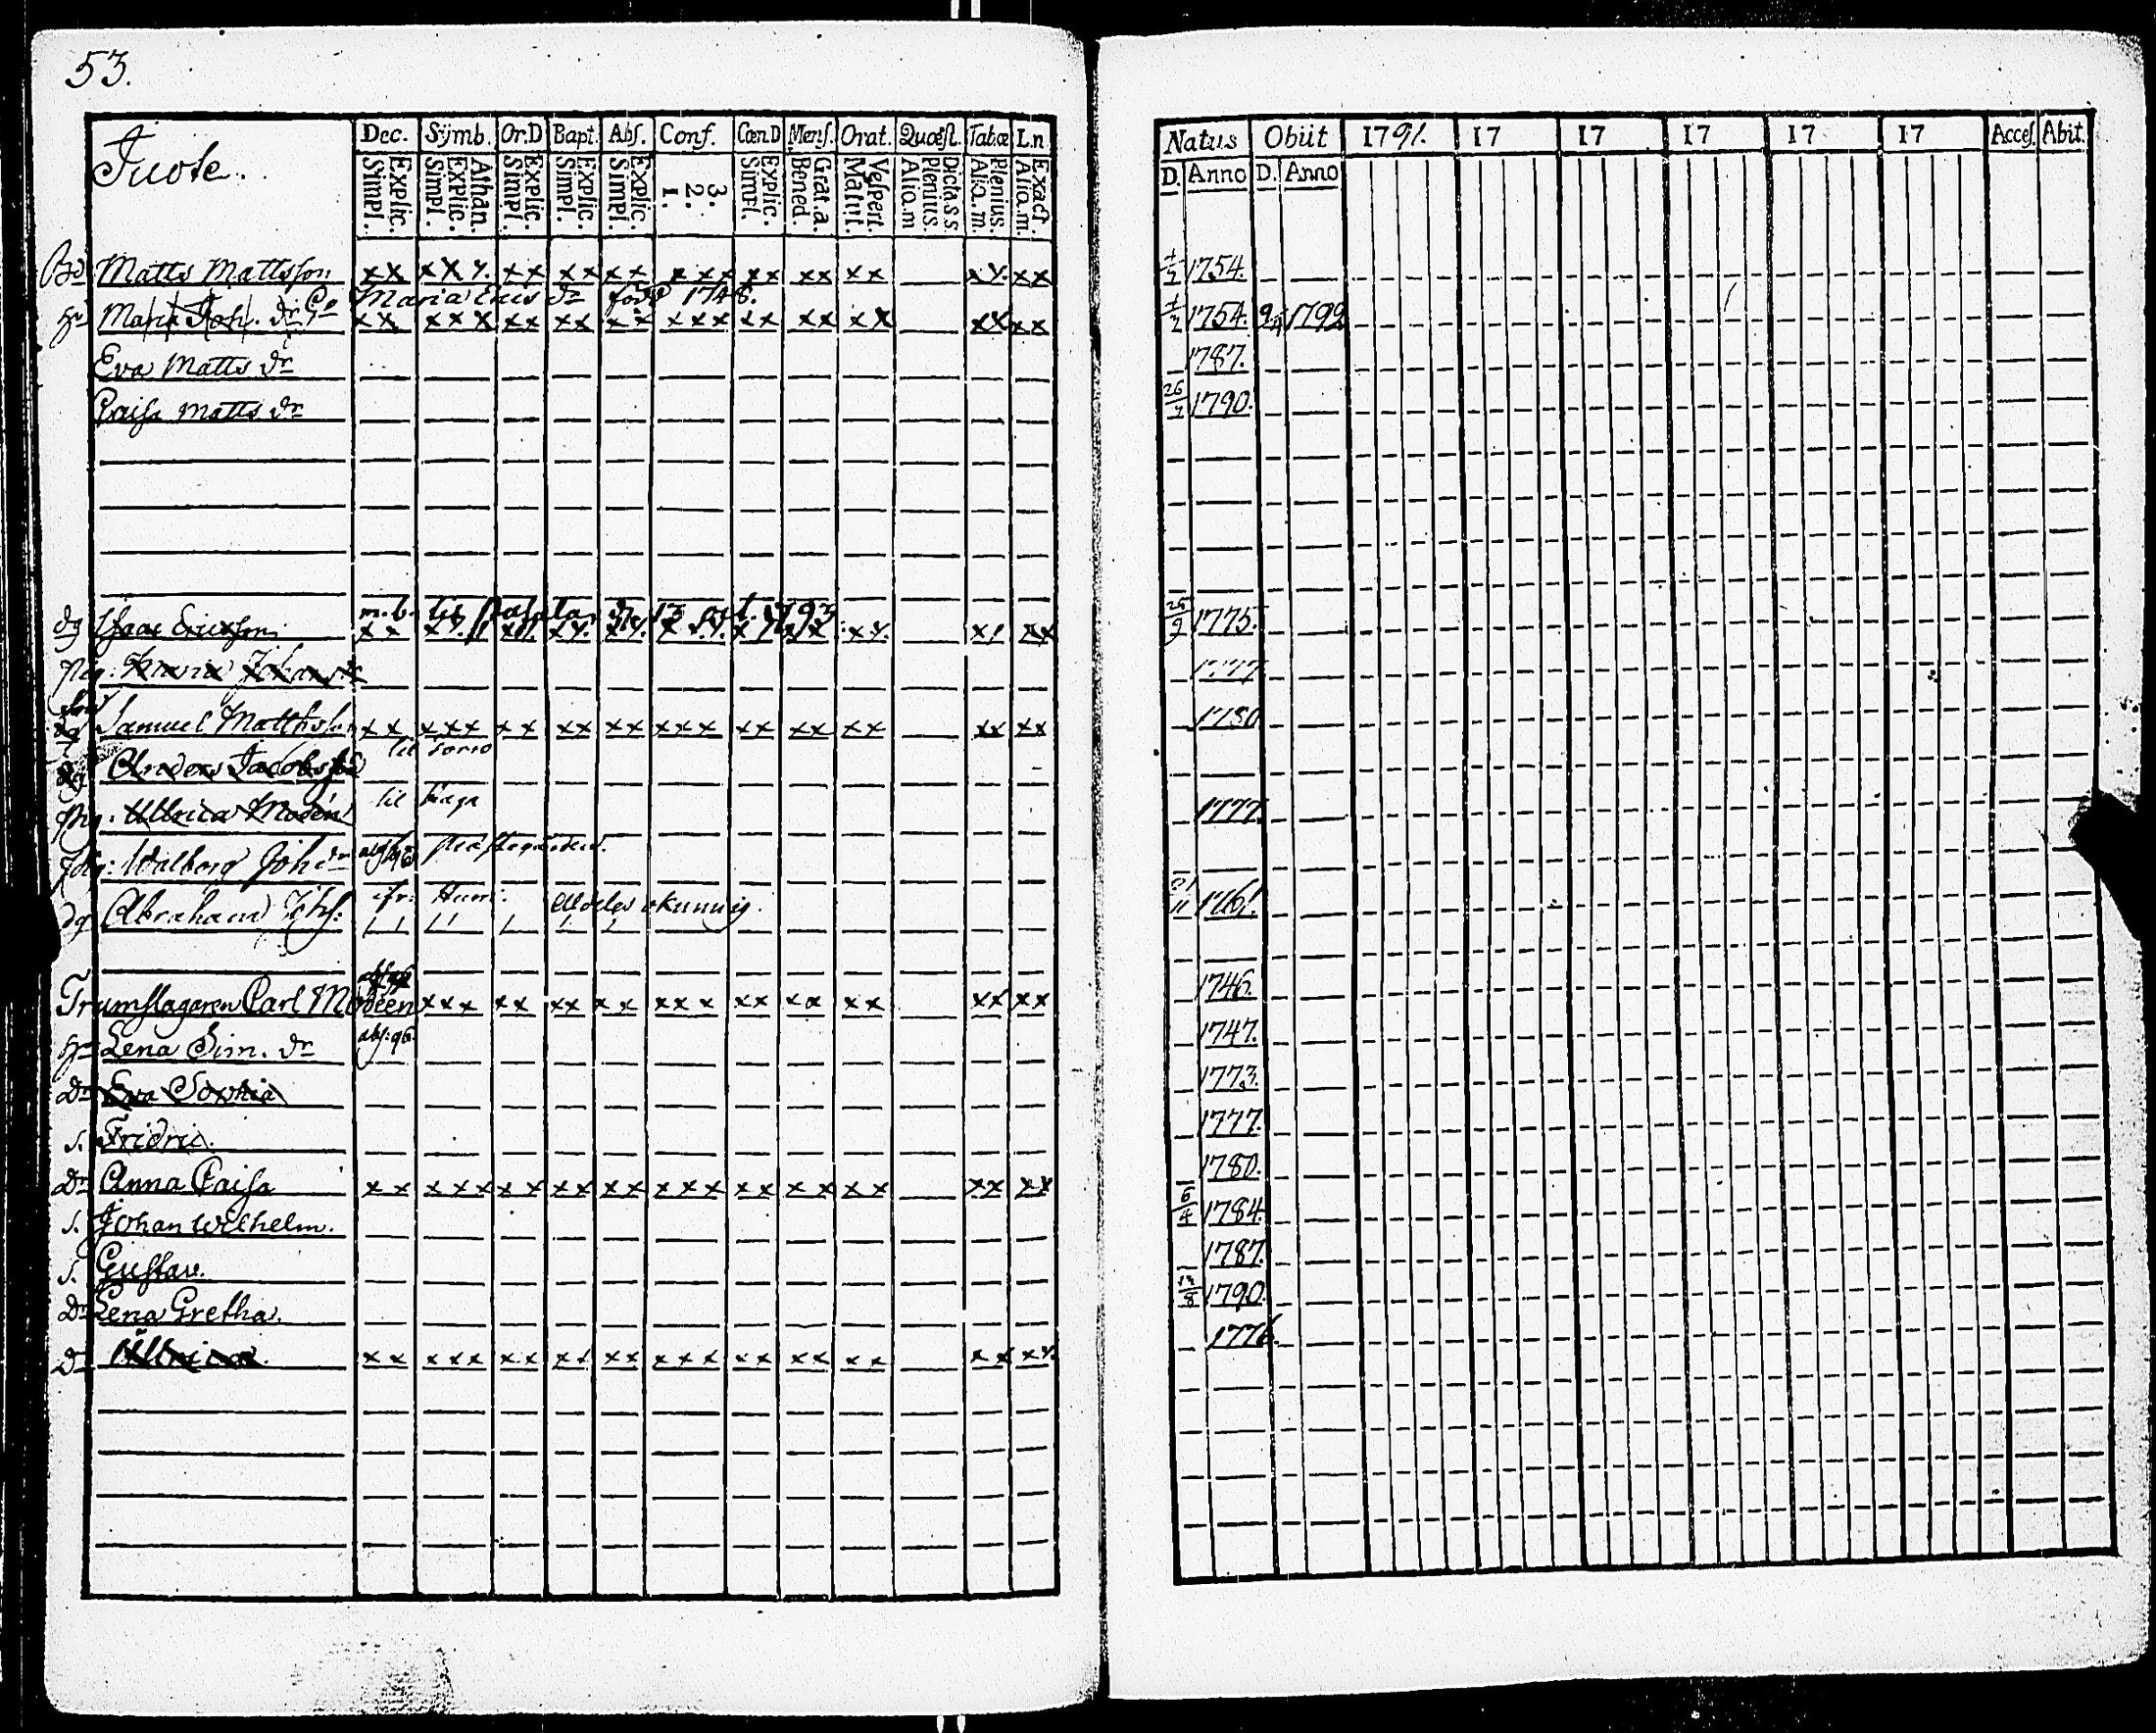 53.
Juote.
Dec. Symb. Or.D Bapt. Abs. Conf. Cœn.D Mens. Orat. Quæst. Tabæ L.n
Explic. Simpl. Athan. Explic. Simpl. Explic. Simpl. Explic. Simpl. Explic. Simpl. 3. 2. 1. Explic. Simpl. Grat.a. Bened. Vespert. Matut. Dicta SS. Plenius. Aliq.m Plenius. Aliq.m. Exact. Aliq.m.
Natus Obiit 1791. 17 17 17 17 17 Acces. Abit.
D. Anno D. Anno
Bd Matts Mattsson xx xxx xx xx xx xxx xx xx xx xx xx 1754.
Maria Erics dr född 1748.
Hu Maria Joh. dr xx xxx xx xx xx xxx xx xx xx xx xx 1754. 1792
Eva Matts dr 1787.
Caisa Matts dr 26/7 1790.
m.b. til 1793
dg Isaac Ericsson xx xx xx xx xx 25/9 1775.
pig: Maria Johans dr 1777
dg Samuel Matths son xx xxx xx xx xx xxx xx xx xx xx xx 1780
dg Anders Jacobss til
pig. Ullrica Modén til Haga 1777.
pig: Walborg Joh dr
dg Abraham Johs: ifr. aldeles okunnig. 1761.
Trumslagaren Carl Modeen xxx xx xx xx xxx xx xx xx xx xx 1746.
Hu Lena Sim. dr abs: 96. 1747.
Dr Eva Sophia 1773.
s. Fridric. 1777.
Dr Anna Caisa xx xxx xx xx xx xxx xx xx xx xx xx 1780.
s. Johan Wilhelm. 6/4 1784.
s. Gustav. 1787.
Dr Lena Gretha. 1790.
Dr Ullrica. xx xxx xx xx xx xxx xx xx xx xx xx 1776.